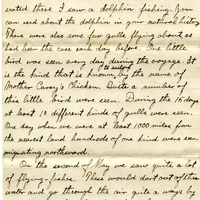 seated there I saw a dolphin fishing. You
can read about the dolphin in your natural history.
There were also some few gulls flying about, as
had been the case each day before. One little
bird was seen every day during the voyage. It
is the kind that is known to sailors by the name of
Mother Carey's Chicken. Quite a number of
this little bird were seen. During the 15 days
at least 10 different kinds of gulls were seen.
One day when we were at least 1000 miles from
the nearest land hundreds of one kind were seen
migrating northward.
On the second of May we saw quite a lot
of flying-fishes. These would dart out of the
water and go through the air quite a ways by